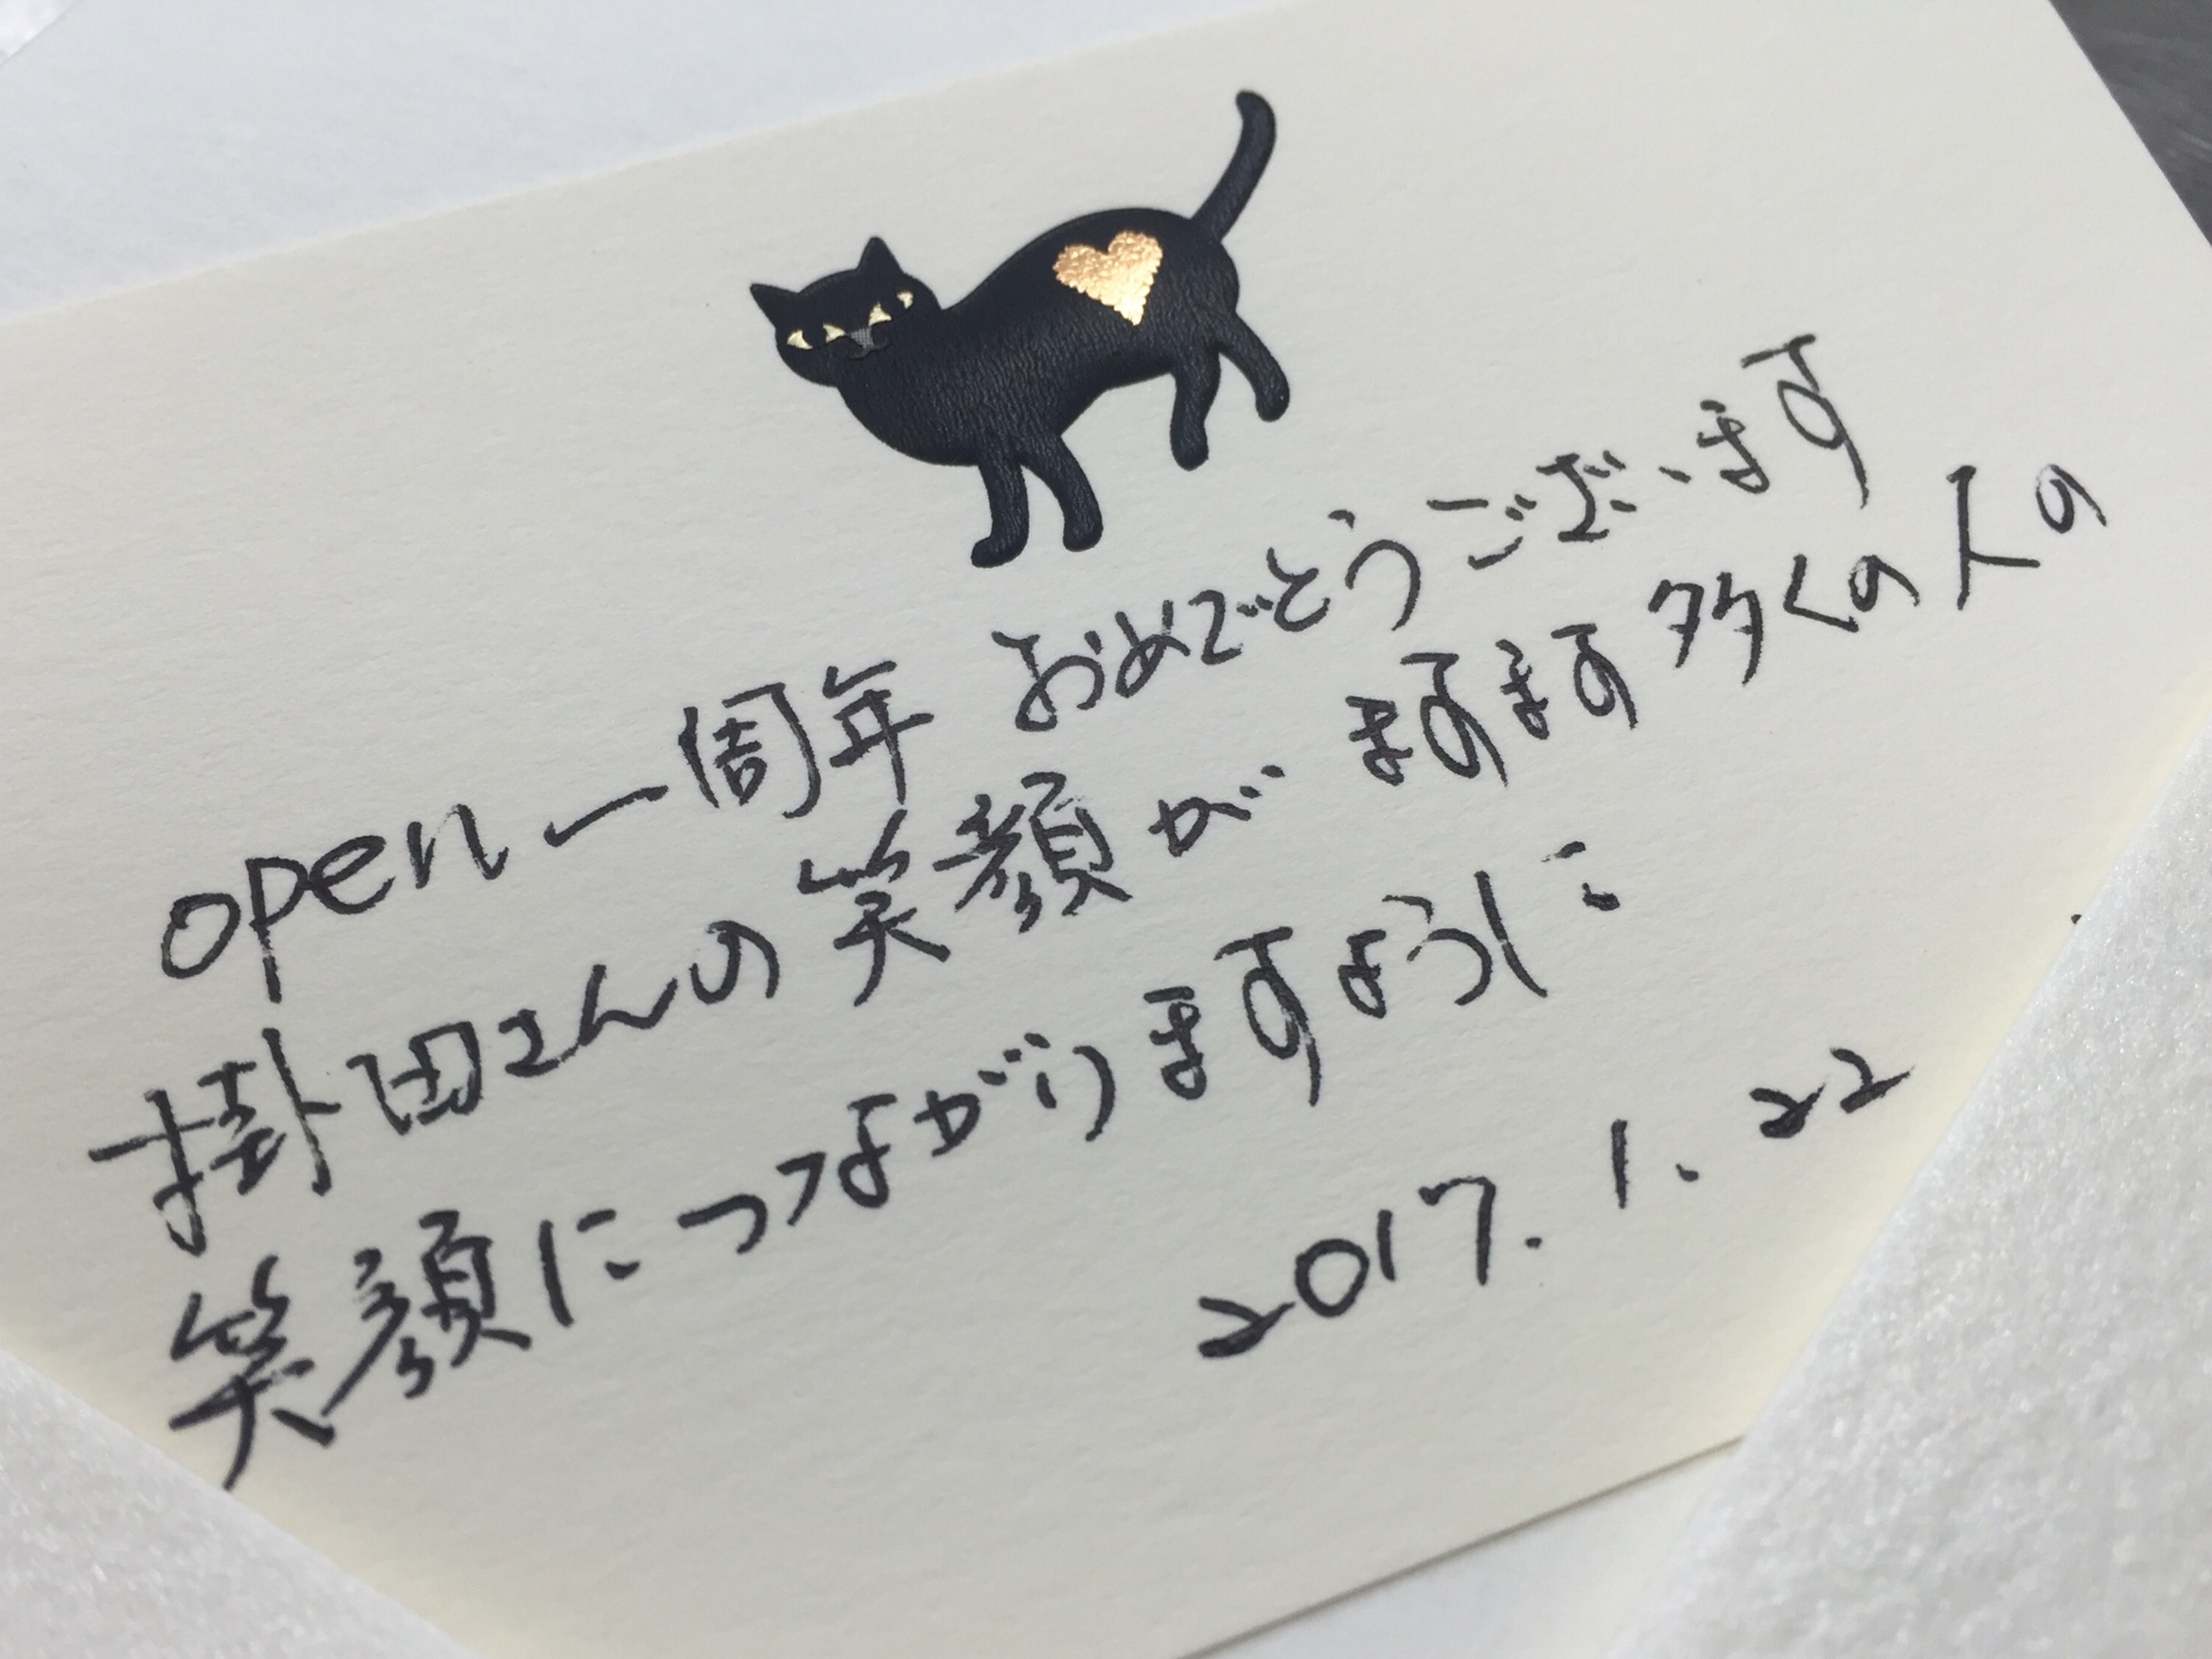 open一周年 おめでとうございます
掛田さんの笑顔が ますます多くの人の
笑顔につながりますように
2017.1.22